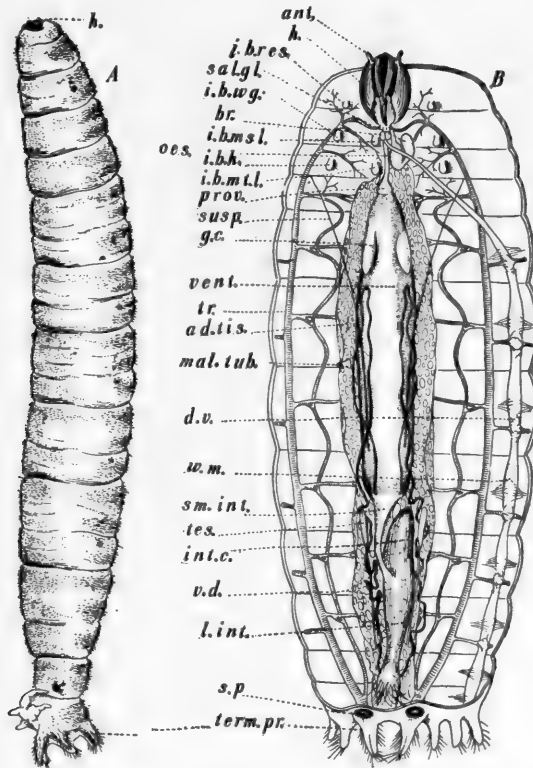 h.
A
ant.
h.
B
i.b.res.
sal.gl.
i.b.wg.
br.
oes.
i.b.msl.
i.b.h.
i.b.mt.l.
prov.
susp.
g.c.
vent.
tr.
ad.tis.
mal.tub.
d.v.
w.m.
sm.int.
tes.
int.c.
v.d.
l.int.
s.p
term.pr.